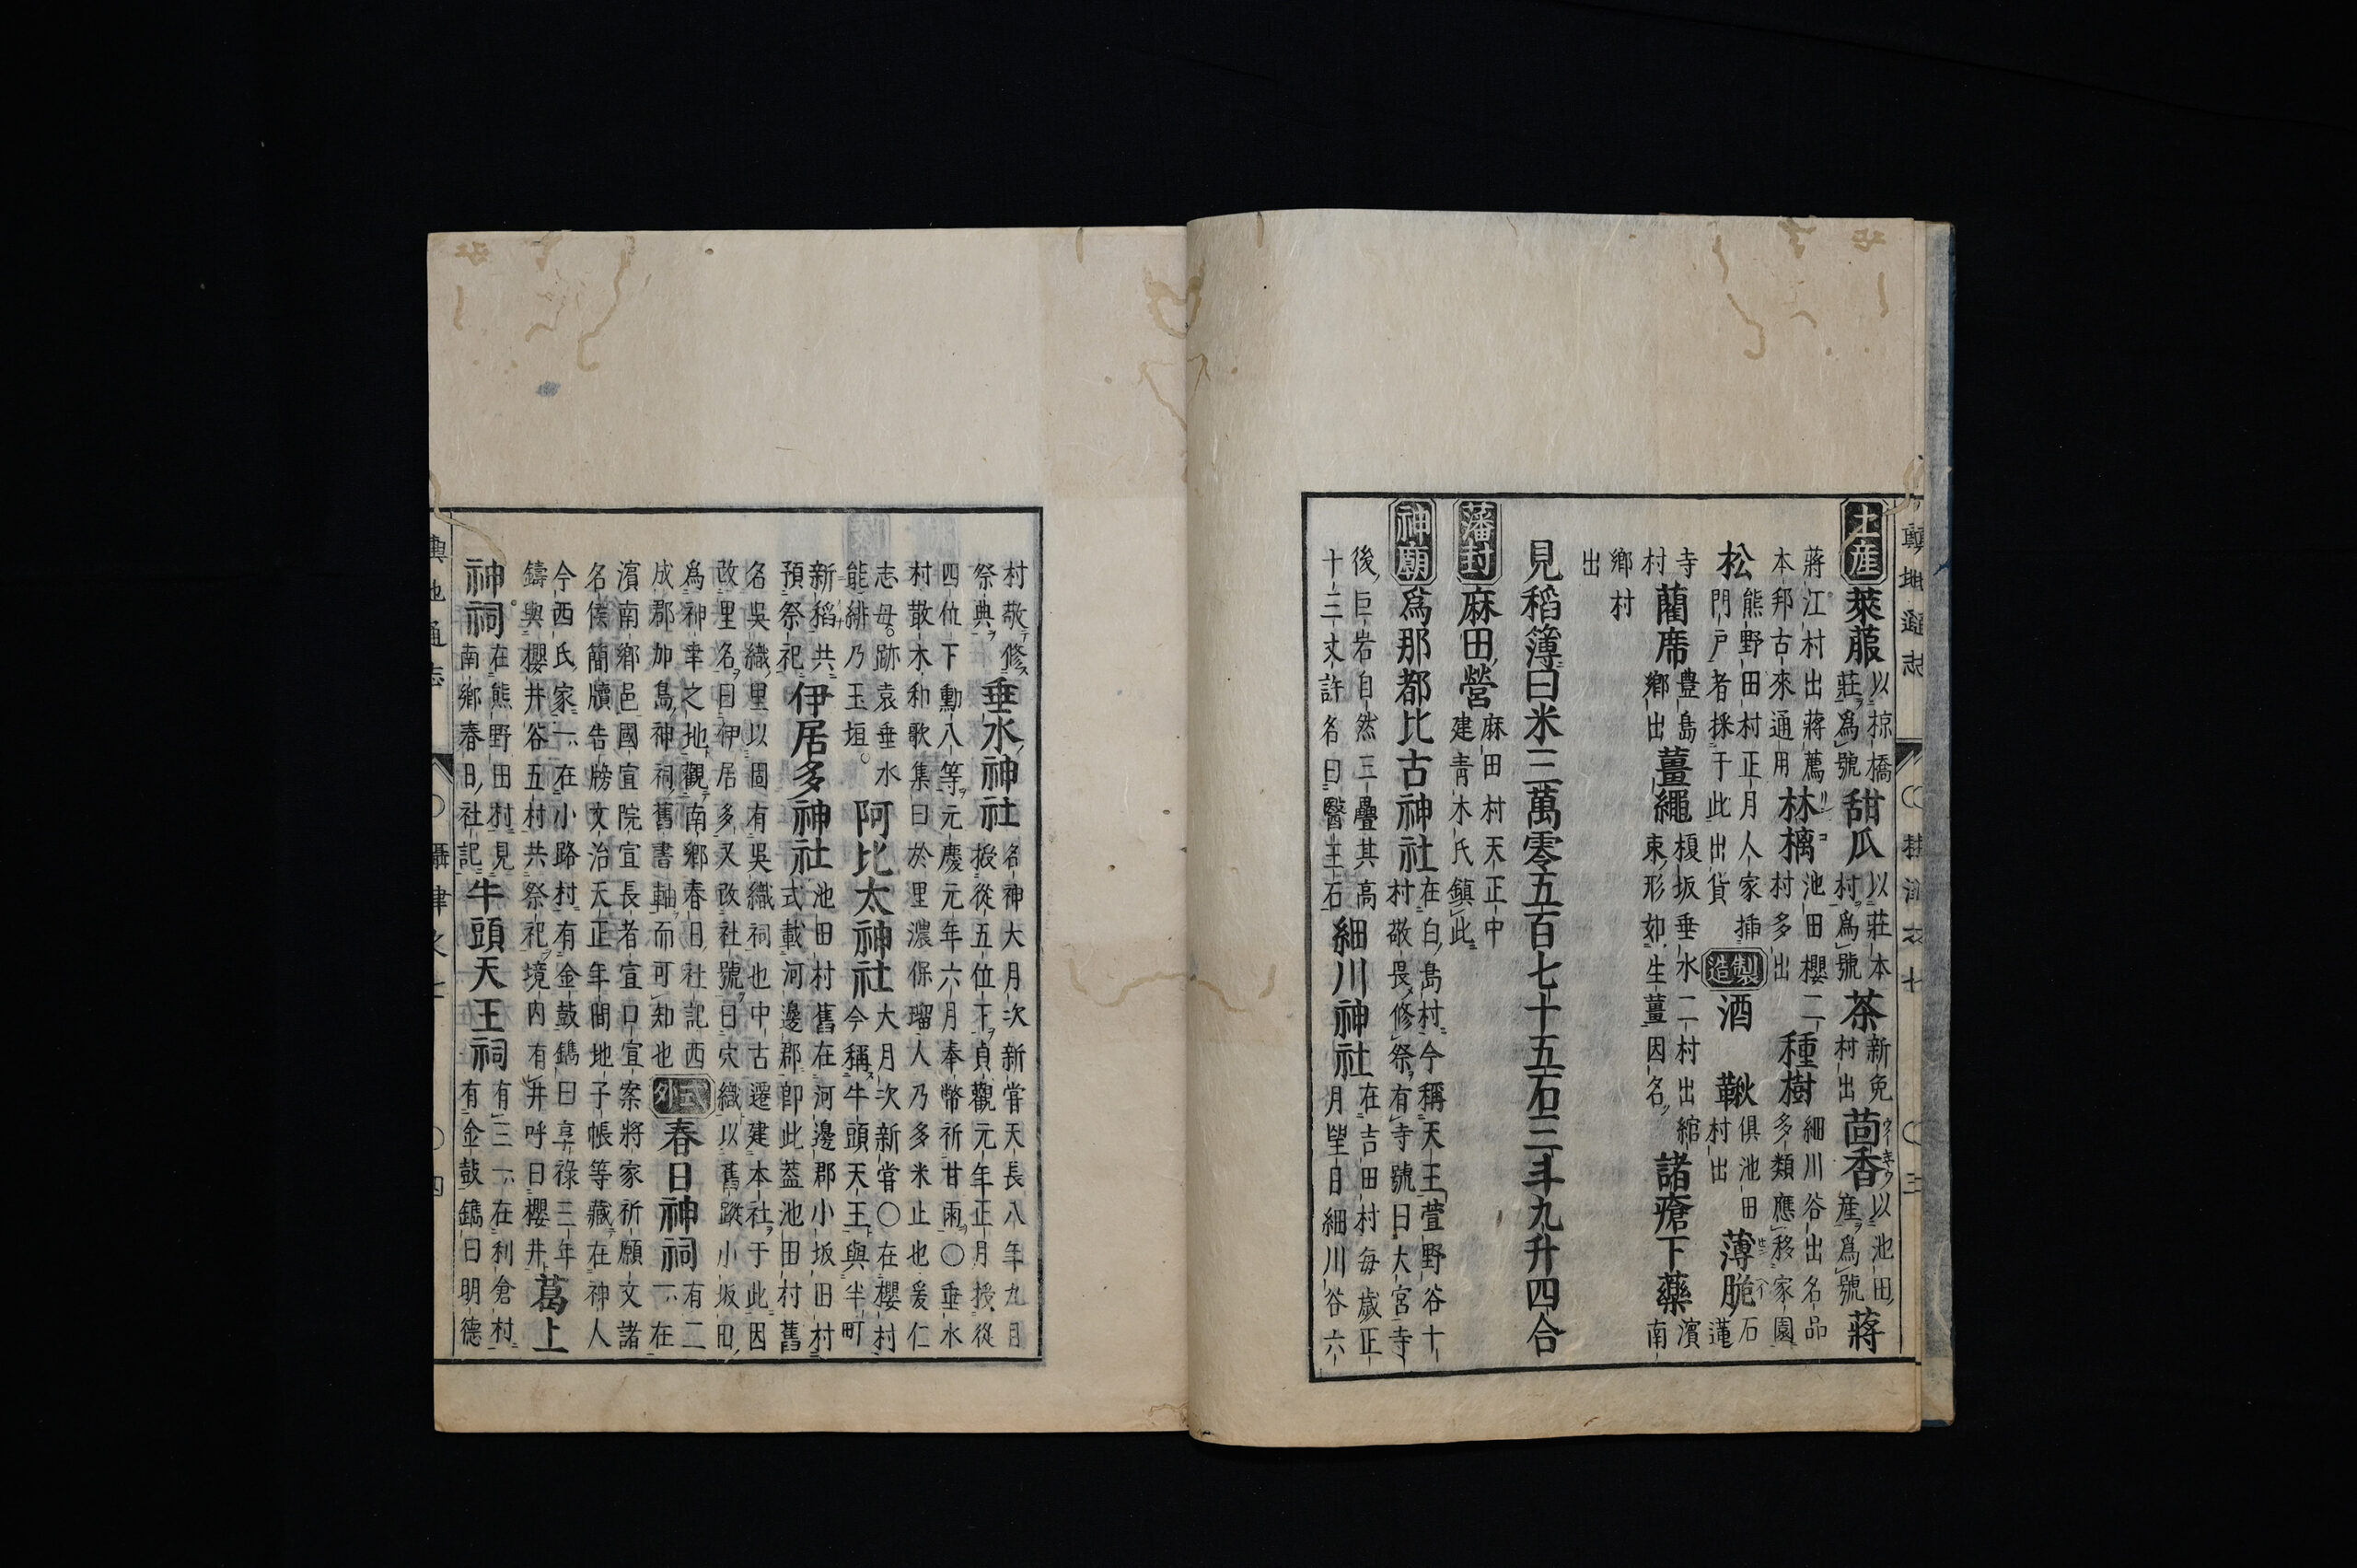 土産 萊菔 以椋橋莊爲號 甜瓜 以莊本村爲號 茶 新免村出 茴香 以池田産爲號 蔣
蔣江村出蔣薦本邦古來通用 林檎 池田櫻二村多出 種樹 細川谷出名品多類應移家園
松 熊野田村正月人家插門戸者採于此出貨 製造 酒 鞦 倶池田村出 薄脆 石蓮
寺村 藺席 豊島郷出 薑繩 榎坂垂水二村出綰束形如生薑因名 諸瘡下藥 濱南
郷村出
見稻簿曰米三萬零五百七十五石三斗九升四合
藩封 麻田營 麻田村天正中建青木氏鎮此
神廟 爲那都比古神社 在白島村今稱天王萱野谷十村敬畏修祭有寺號曰大宮寺
後巨岩自然三疊其高十三丈許名曰醫王石 細川神社 在吉田村毎歳正月望日細川谷六
村敬修祭典 垂水神社 名神大月次新嘗天長八年九月授從五位下貞觀元年正月授從
四位下勳八等元慶元年六月奉幣祈甘雨〇垂水村散木和歌集曰於里濃保瑠人乃多米止也爰仁
志毋跡袁垂水能緋乃玉垣 阿比太神社 大月次新嘗〇在櫻村今稱牛頭天王與半町
新稻共預祭祀 伊居多神社 池田村舊在河邊郡小坂田村式載河邊郡卽此蓋池田村舊
名呉織里以固有呉織祠也中古遷建本社于此因改里名曰伊居多又改社號曰穴織以舊蹤小坂田
爲神幸之地觀南郷春日社記西成郡加島神祠舊書軸而可知也 式外 春日神祠 有二一在
濱南郷邑國宣院宣長者宣口宣案將家祈願文諸名簡牘告牓文治天正年間地子帳等藏在神人
今西氏家一在小路村有金鼓鐫曰享祿三年鑄與櫻井谷五村共祭祀境内有井呼曰櫻井 葛上
神祠 在熊野田村見南郷春日社記 牛頭天王祠 有三一在利倉村有金鼓鐫曰明德